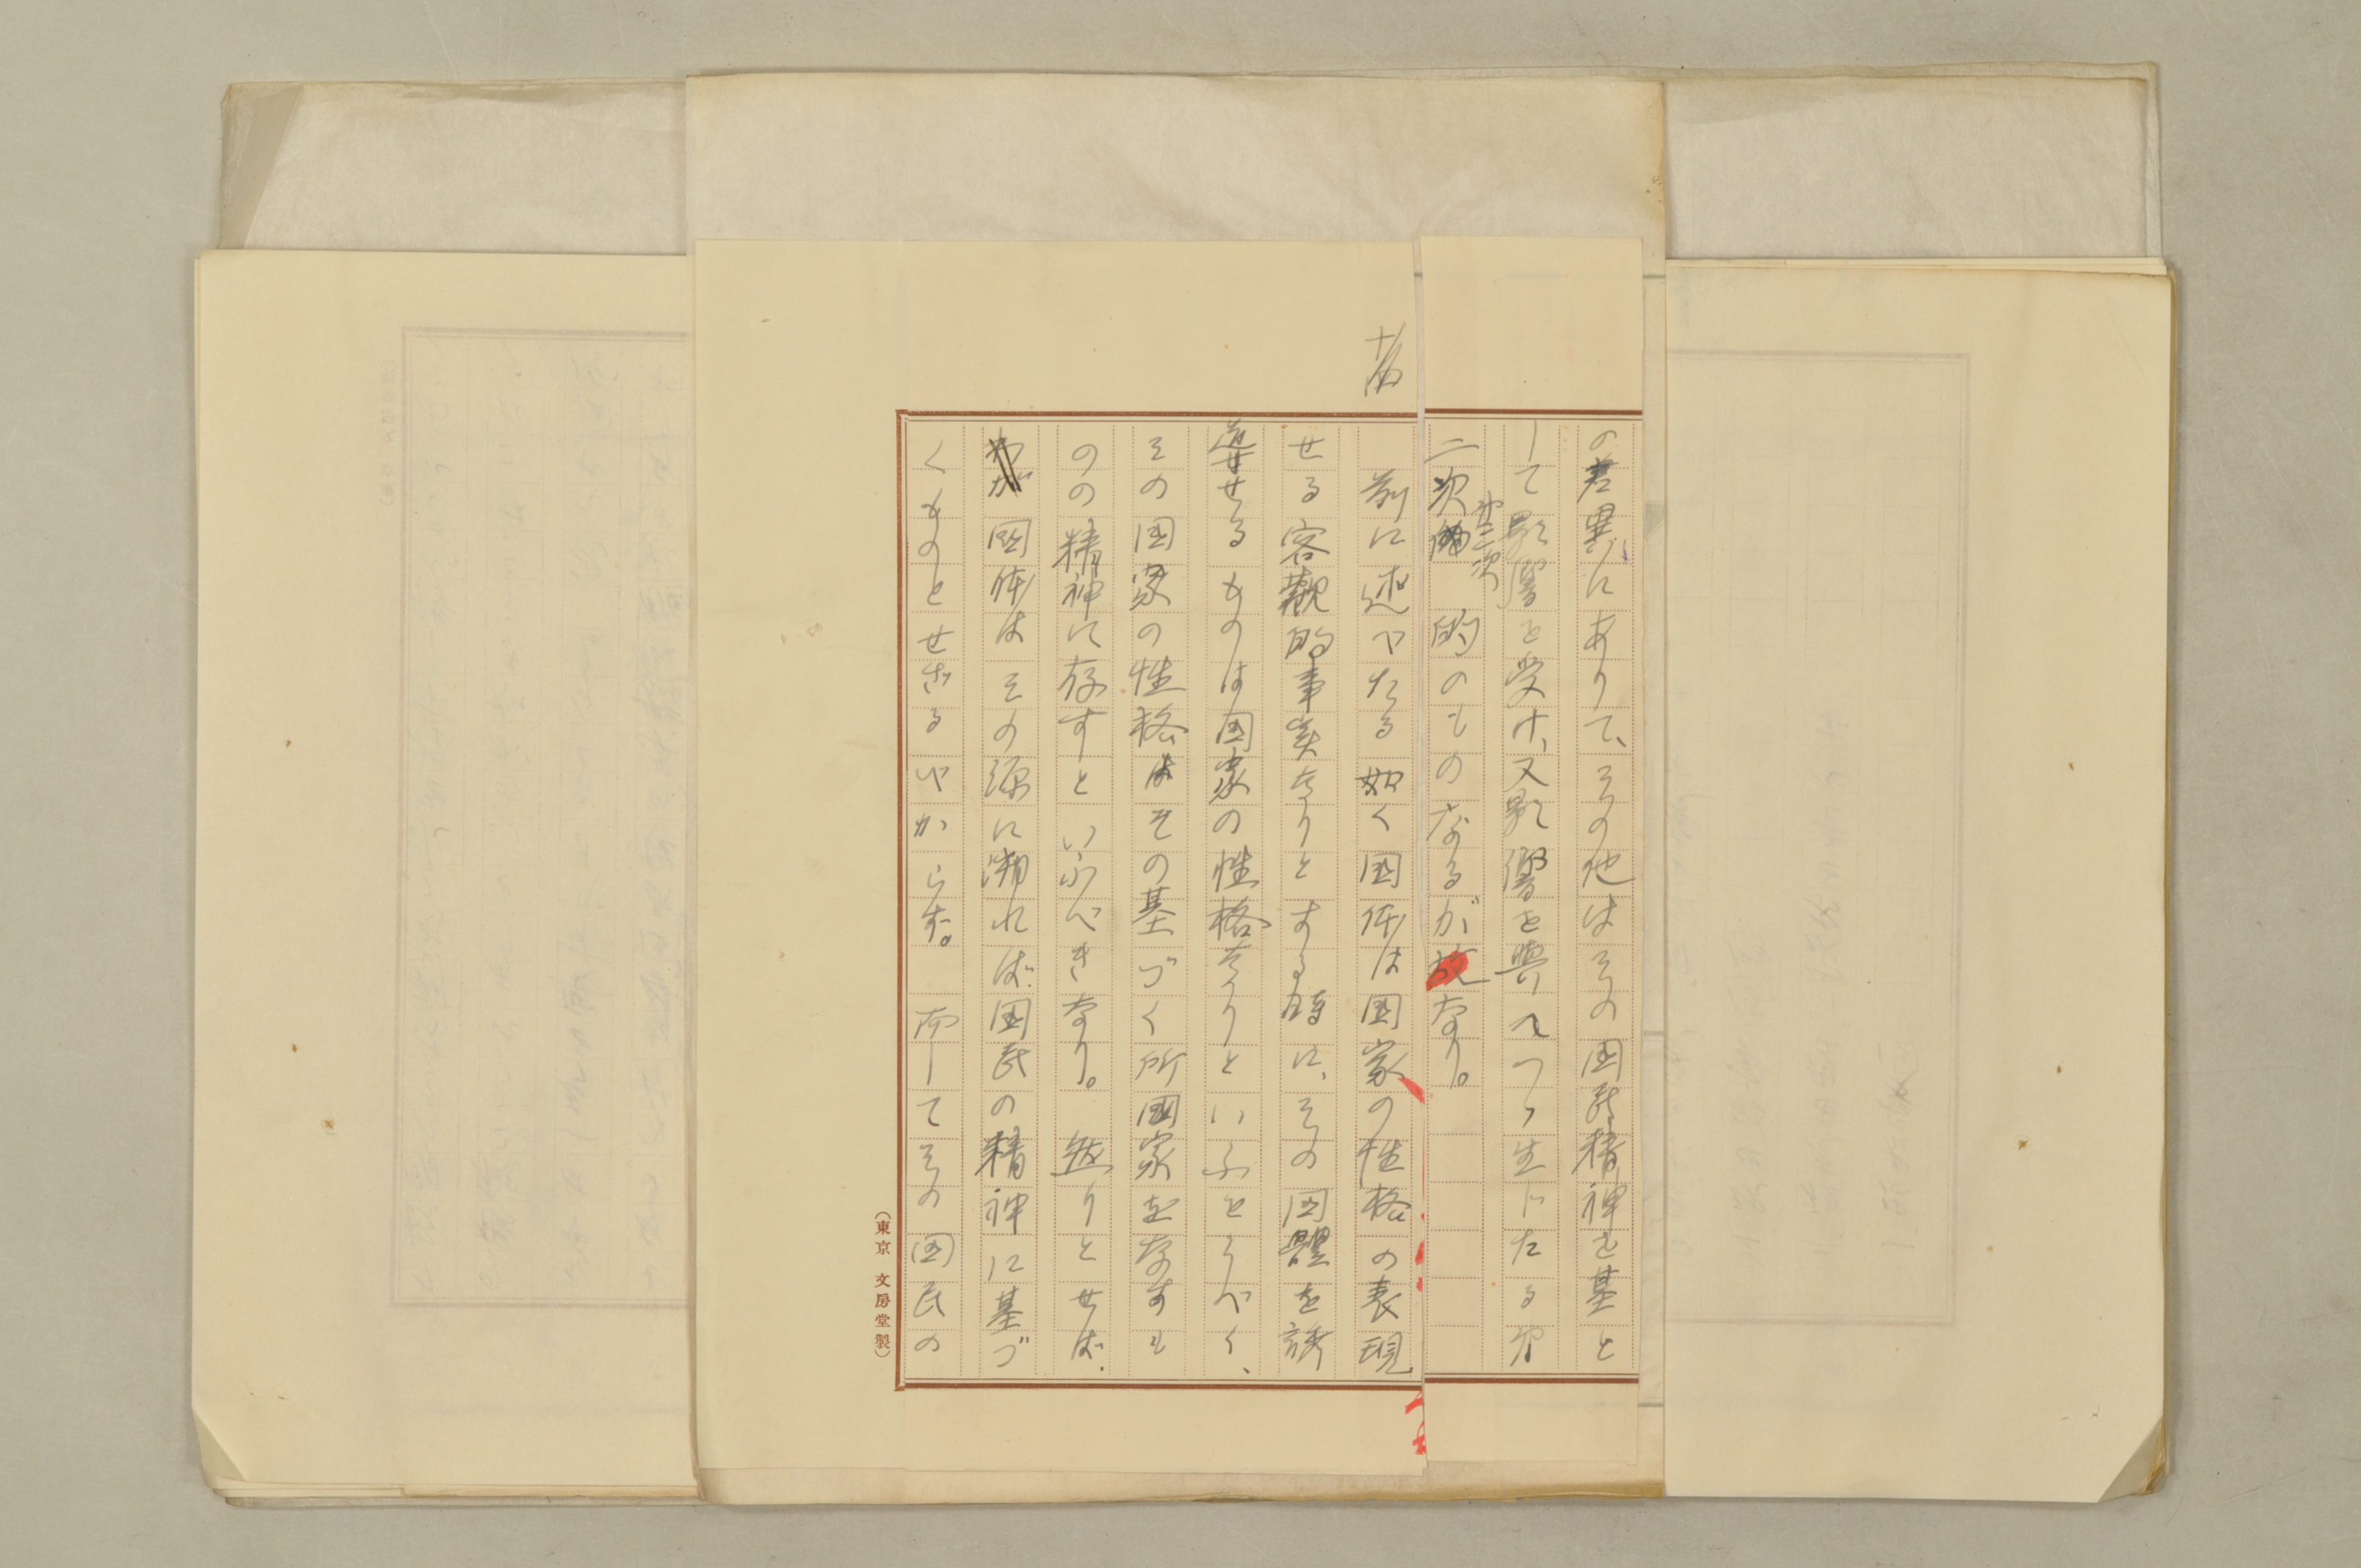 の差異にありて、その他はその国民精神を基と
して影響を受け、又影響を与へつゝ生じたる第
二次
第二次
的のものなるが故なり。
前に述べたる如く国体は国家の性格の表現
せる客観的事実なりとする時に、その国體を誘
導せるものは国家の性格なりといふをうべく、
その国家の性格はその基づく所国家をなすも
のの精神に存すといふべきなり。然りとせば、
わが国体はその源に溯れば国民の精神に基づ
くものとせざるべからず。而してその国民の
(東京 文房堂製)